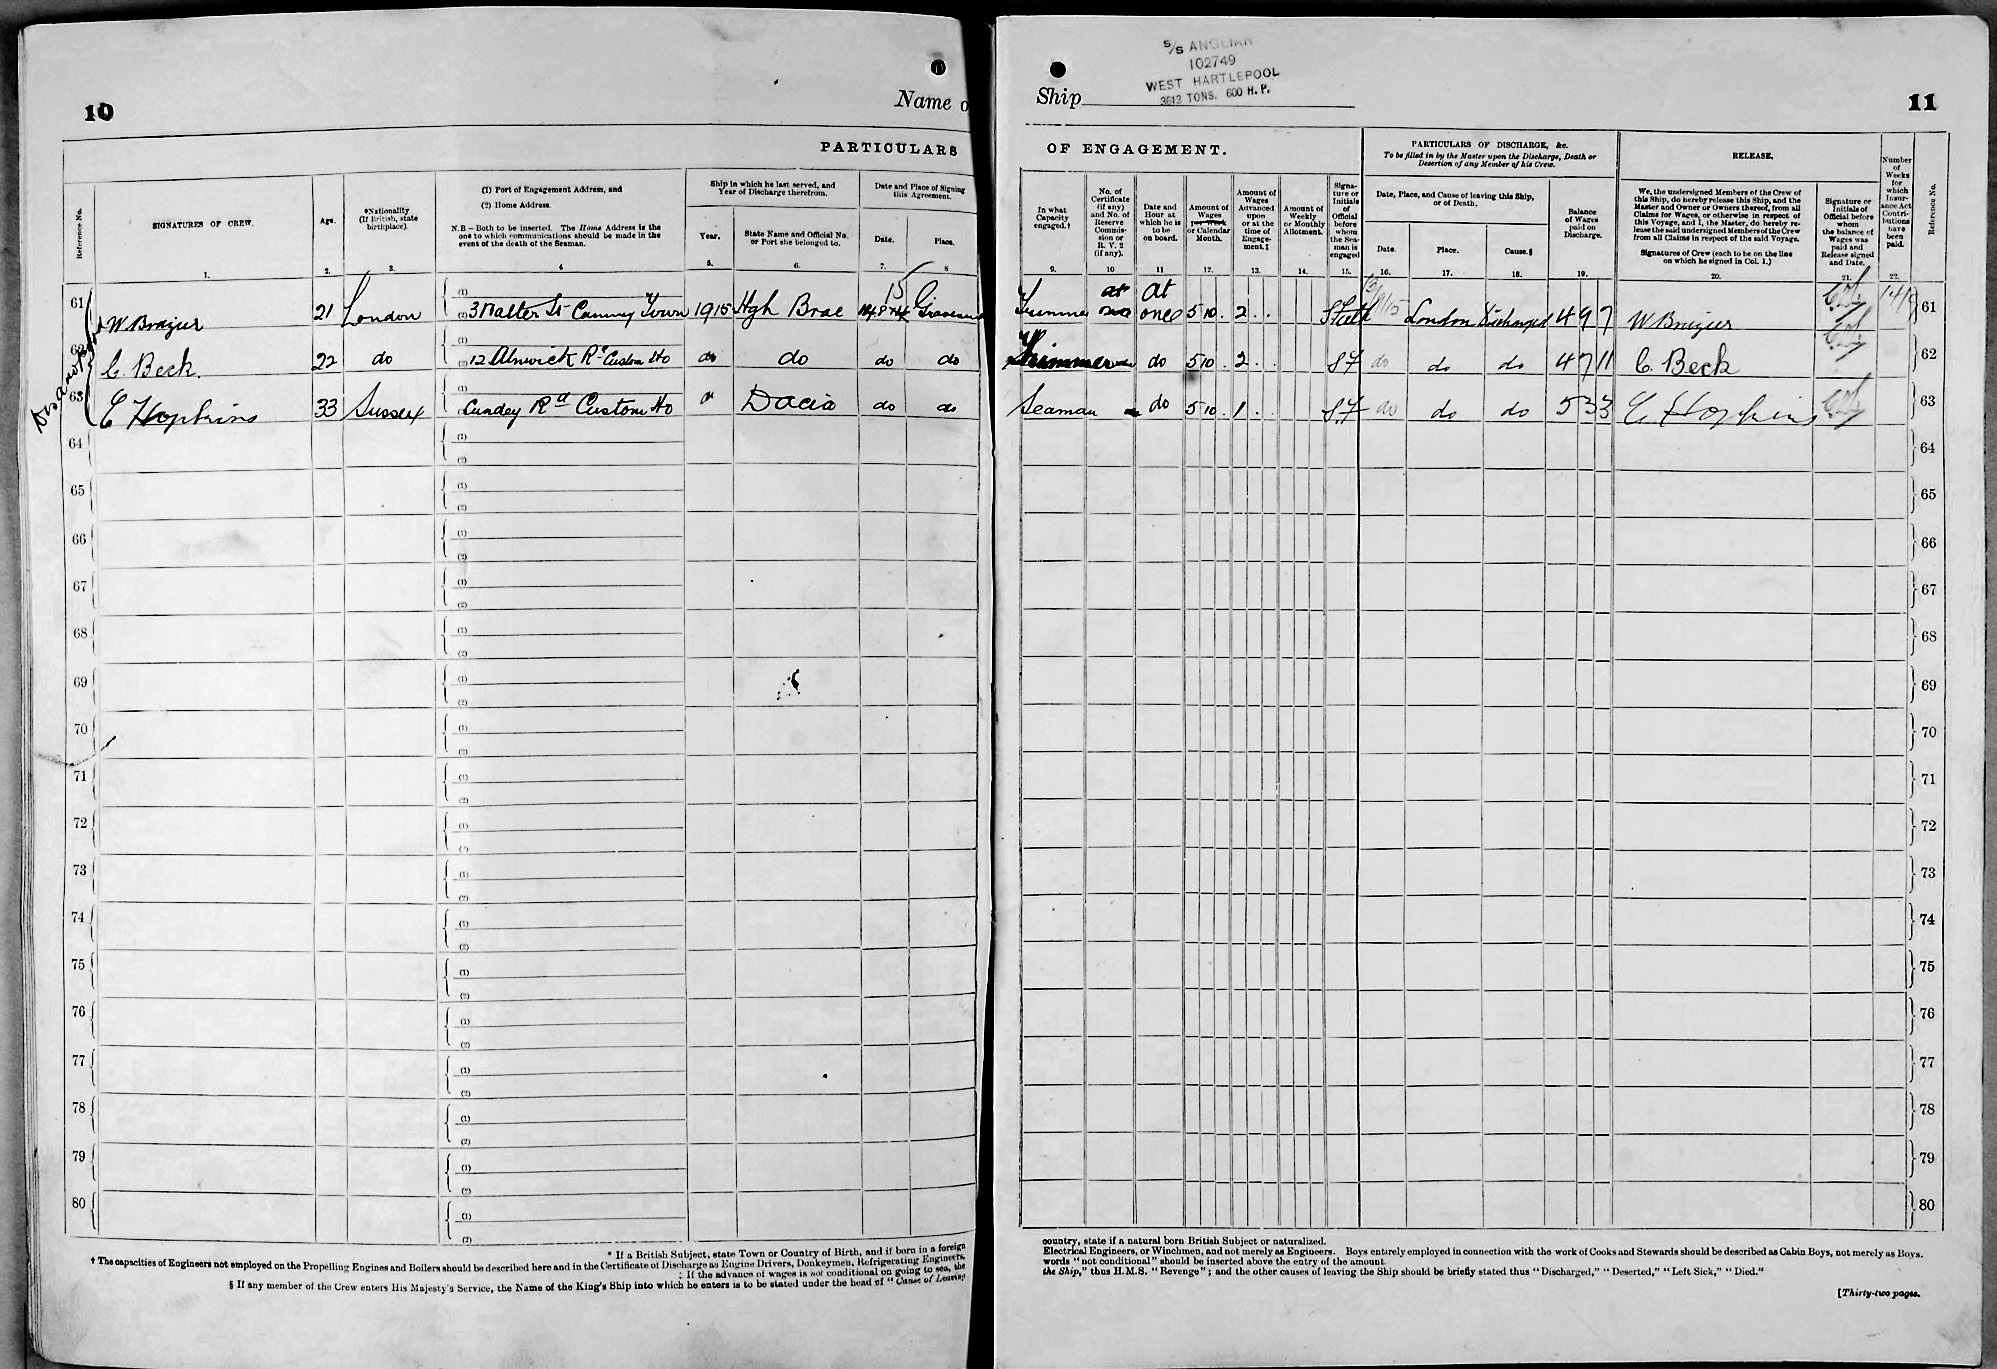 10
Name o
PARTICULARS
Reference No.
SIGNATURES OF CREW.
Age.
*Nationality
(If British, state
birthplace).
(1) Port of Engagement Address, and
(2) Home Address.
N.B—Both to be inserted. The Home Address is the
one to which communications should be made in the
event of the death of the Seaman.
Ship in which he last served, and
Year of Discharge therefrom.
Year.
State Name and Official No.
or Port she belonged to.
Date and Place of Signing
this Agreement.
Date.
Place.
1.
2.
3.
4
5.
6.
7.
8
61 W Brazier 21 London 3 Malter St Canning Town 1915 Hgh Brae 15
62 C. Beck. 22 do 12 Alnwick Rd Custom Ho do do do do
63 E Hopkins 33 Sussex Cundey Rd Custom Ho Dacia do do
64
65
66
67
68
69
70
71
72
73
74
75
76
77
78
79
80
* If a British Subject, state Town or Country of Birth, and if born in a foreign
† The capacities of Engineers not employed on the Propelling Engines and Boilers should be described here and in the Certificate of Discharge as Engine Drivers, Donkeymen, Refrigerating Engineers,
‡ If the advance of wages is not conditional on going to sea, the
§ If any member of the Crew enters His Majesty's Service, the Name of the King's Ship into which he enters is to be stated under the head of "Cause of Leaving
S/S ANGLIAN
102749
WEST HARTLEPOOL
3613 TONS. 600 H.P.
Ship
11
OF ENGAGEMENT.
PARTICULARS OF DISCHARGE, &c.
To be filled in by the Master upon the Discharge, Death or
Desertion of any Member of his Crew.
RELEASE.
Number
of
Weeks
for
which
Insur-
ance Act
Contri-
butions
have
been
paid.
Reference No.
In what
Capacity
engaged.†
No. of
Certificate
(if any)
and No. of
Reserve
Commis-
sion or
R. V. 2
(if any).
Date and
Hour at
which he is
to be
on board.
Amount of
Wages
per Week
or Calendar
Month.
Amount of
Wages
Advanced
upon
or at the
time of
Engage-
ment.‡
Amount of
Weekly
or Monthly
Allotment.
Signa-
ture or
Initials
of
Official
before
whom
the Sea-
man is
engaged
Date, Place, and Cause of leaving this Ship,
or of Death.
Date.
Place.
Cause.§
Balance
of Wages
paid on
Discharge.
We, the undersigned Members of the Crew of
this Ship, do hereby release this Ship, and the
Master and Owner or Owners thereof, from all
Claims for Wages, or otherwise in respect of
this Voyage, and I, the Master, do hereby re-
lease the said undersigned Members of the Crew
from all Claims in respect of the said Voyage.
Signatures of Crew (each to be on the line
on which he signed in Col. 1.)
Signature or
Initials of
Official before
whom
the balance of
Wages was
paid and
Release signed
and Date.
9.
10
11
12.
13.
14.
15.
16.
17.
18.
19.
20.
21.
22.
at once 5 10 . 2 . . London Discharged 4 9 7 W Brazier 61
Trimmer do 5 10 . 2 . . do do do 4 7 11 C. Beck 62
Seaman do 5 10 . 1 . . do do do 5 3 3 E Hopkins 63
64
65
66
67
68
69
70
71
72
73
74
75
76
77
78
79
80
country, state if a natural born British Subject or naturalized.
Electrical Engineers, or Winchmen, and not merely as Engineers. Boys entirely employed in connection with the work of Cooks and Stewards should be described as Cabin Boys, not merely as Boys.
words "not conditional" should be inserted above the entry of the amount.
the Ship," thus H.M.S. "Revenge"; and the other causes of leaving the Ship should be briefly stated thus "Discharged," "Deserted," "Left Sick," "Died."
[Thirty-two pages.